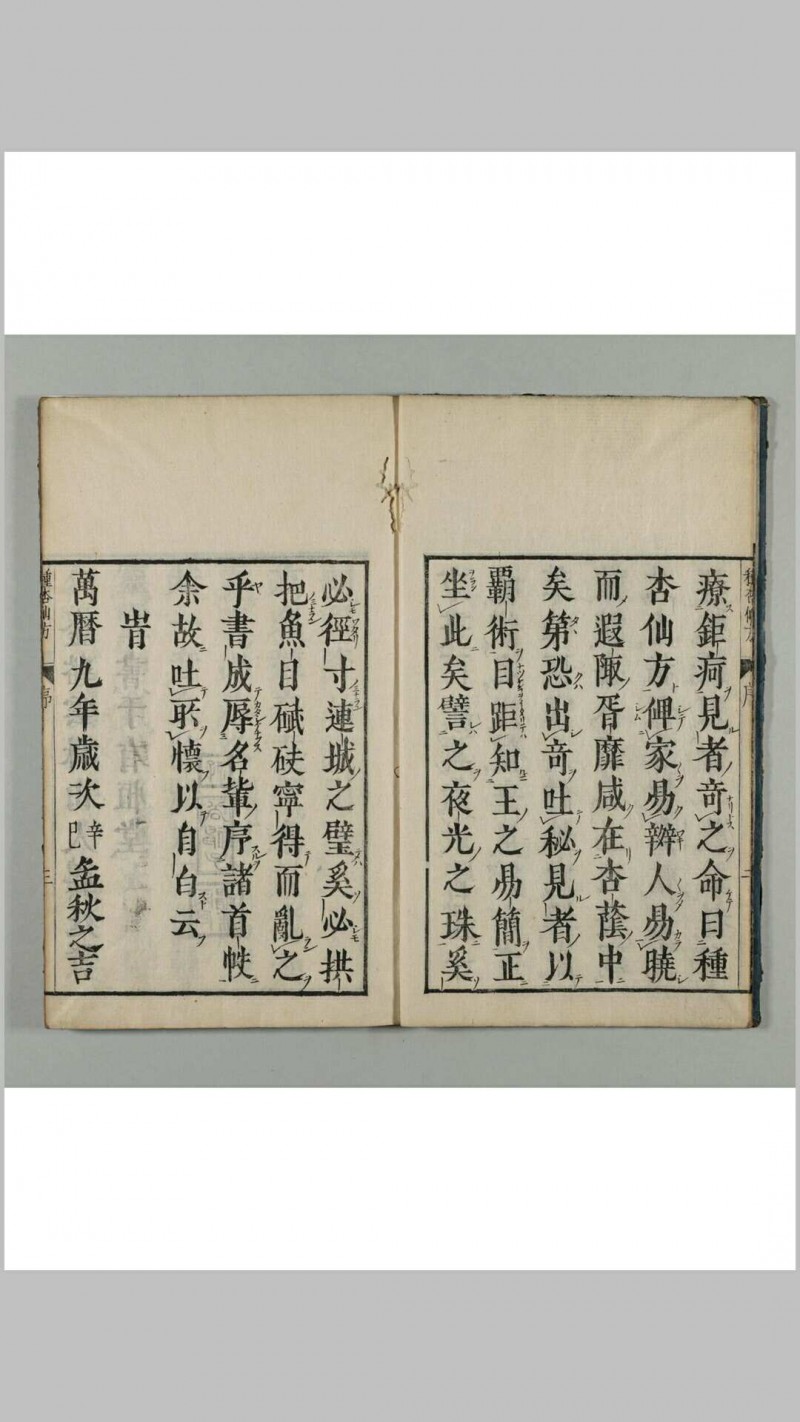 療鉅疴見者奇之命曰種
杏仙方俾家易辨人易曉
而遐陬胥靡咸在杏蔭中
矣第恐出奇吐秘見者以
覇術目距知王之易簡正
坐此矣譬之夜光之珠奚
必徑寸連城之璧奚必拱
把魚目碔砆寧得而亂之
乎書成辱名輩序諸首帙
余故吐所懷以自白云
旹
萬曆九年歲次辛巳孟秋之吉
種杏仙方
序
三